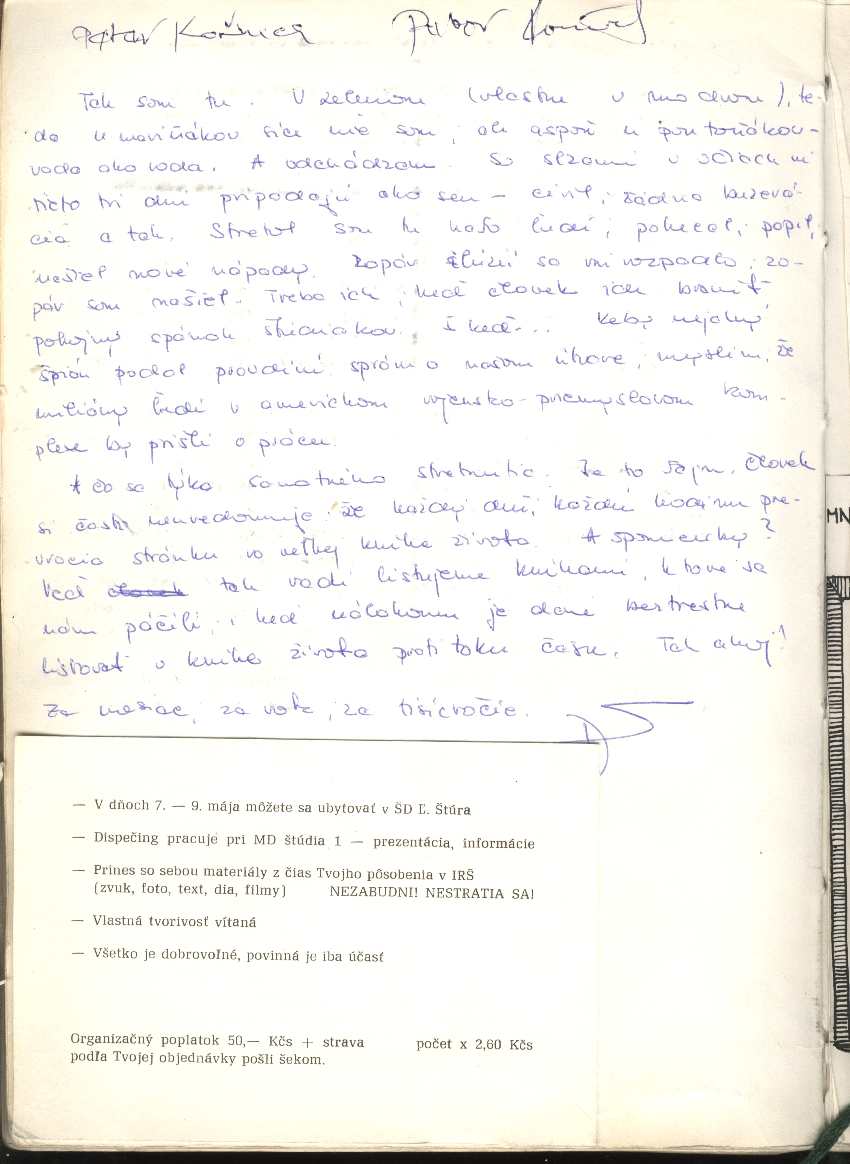 Peter
Tak som tu. V zelenom (vlastne v modrom), te-
da u mariňákov síce nie som, ale aspoň u pontoňákov -
voda ako voda. A odchádzam. So slzami v očiach mi
tieto tri dni pripadajú ako sen - civil, žiadna buzerá-
cia a tak. Stretol som tu ľudí, pokecal, popil,
našiel nové nápady. Zopár ilúzií sa mi rozpadlo, zo-
pár som našiel. Treba ich, keď človek ich brániť
pokojný spánok I keď... Keby nejaký
špión podal pravdivú správu o našom útvare, myslím, že
milióny ľudí v americkom vojensko-priemyslovom kom-
plexe by prišli o prácu.
A čo sa týka samotného stretnutia. Je to fajn. Človek
si často neuvedomuje, že každý deň, každú hodinu pre-
vracia stránku vo veľkej knihe života. A spomienky?
Veď tak radi listujeme knihami, ktoré sa
nám páčili, i keď málokomu je dané beztrestne
listovať v knihe života proti toku času. Tak ahoj!
Za mesiac, za rok, za tisícročie.
— V dňoch 7. — 9. mája môžete sa ubytovať v ŠD Ľ. Štúra
— Dispečing pracuje pri MD štúdia 1 — prezentácia, informácie
— Prines so sebou materiály z čias Tvojho pôsobenia v IRŠ
(zvuk, foto, text, dia, filmy) NEZABUDNI! NESTRATIA SA!
— Vlastná tvorivosť vítaná
— Všetko je dobrovoľné, povinná je iba účasť
Organizačný poplatok 50,— Kčs + strava počet x 2,60 Kčs
podľa Tvojej objednávky pošli šekom.
MN